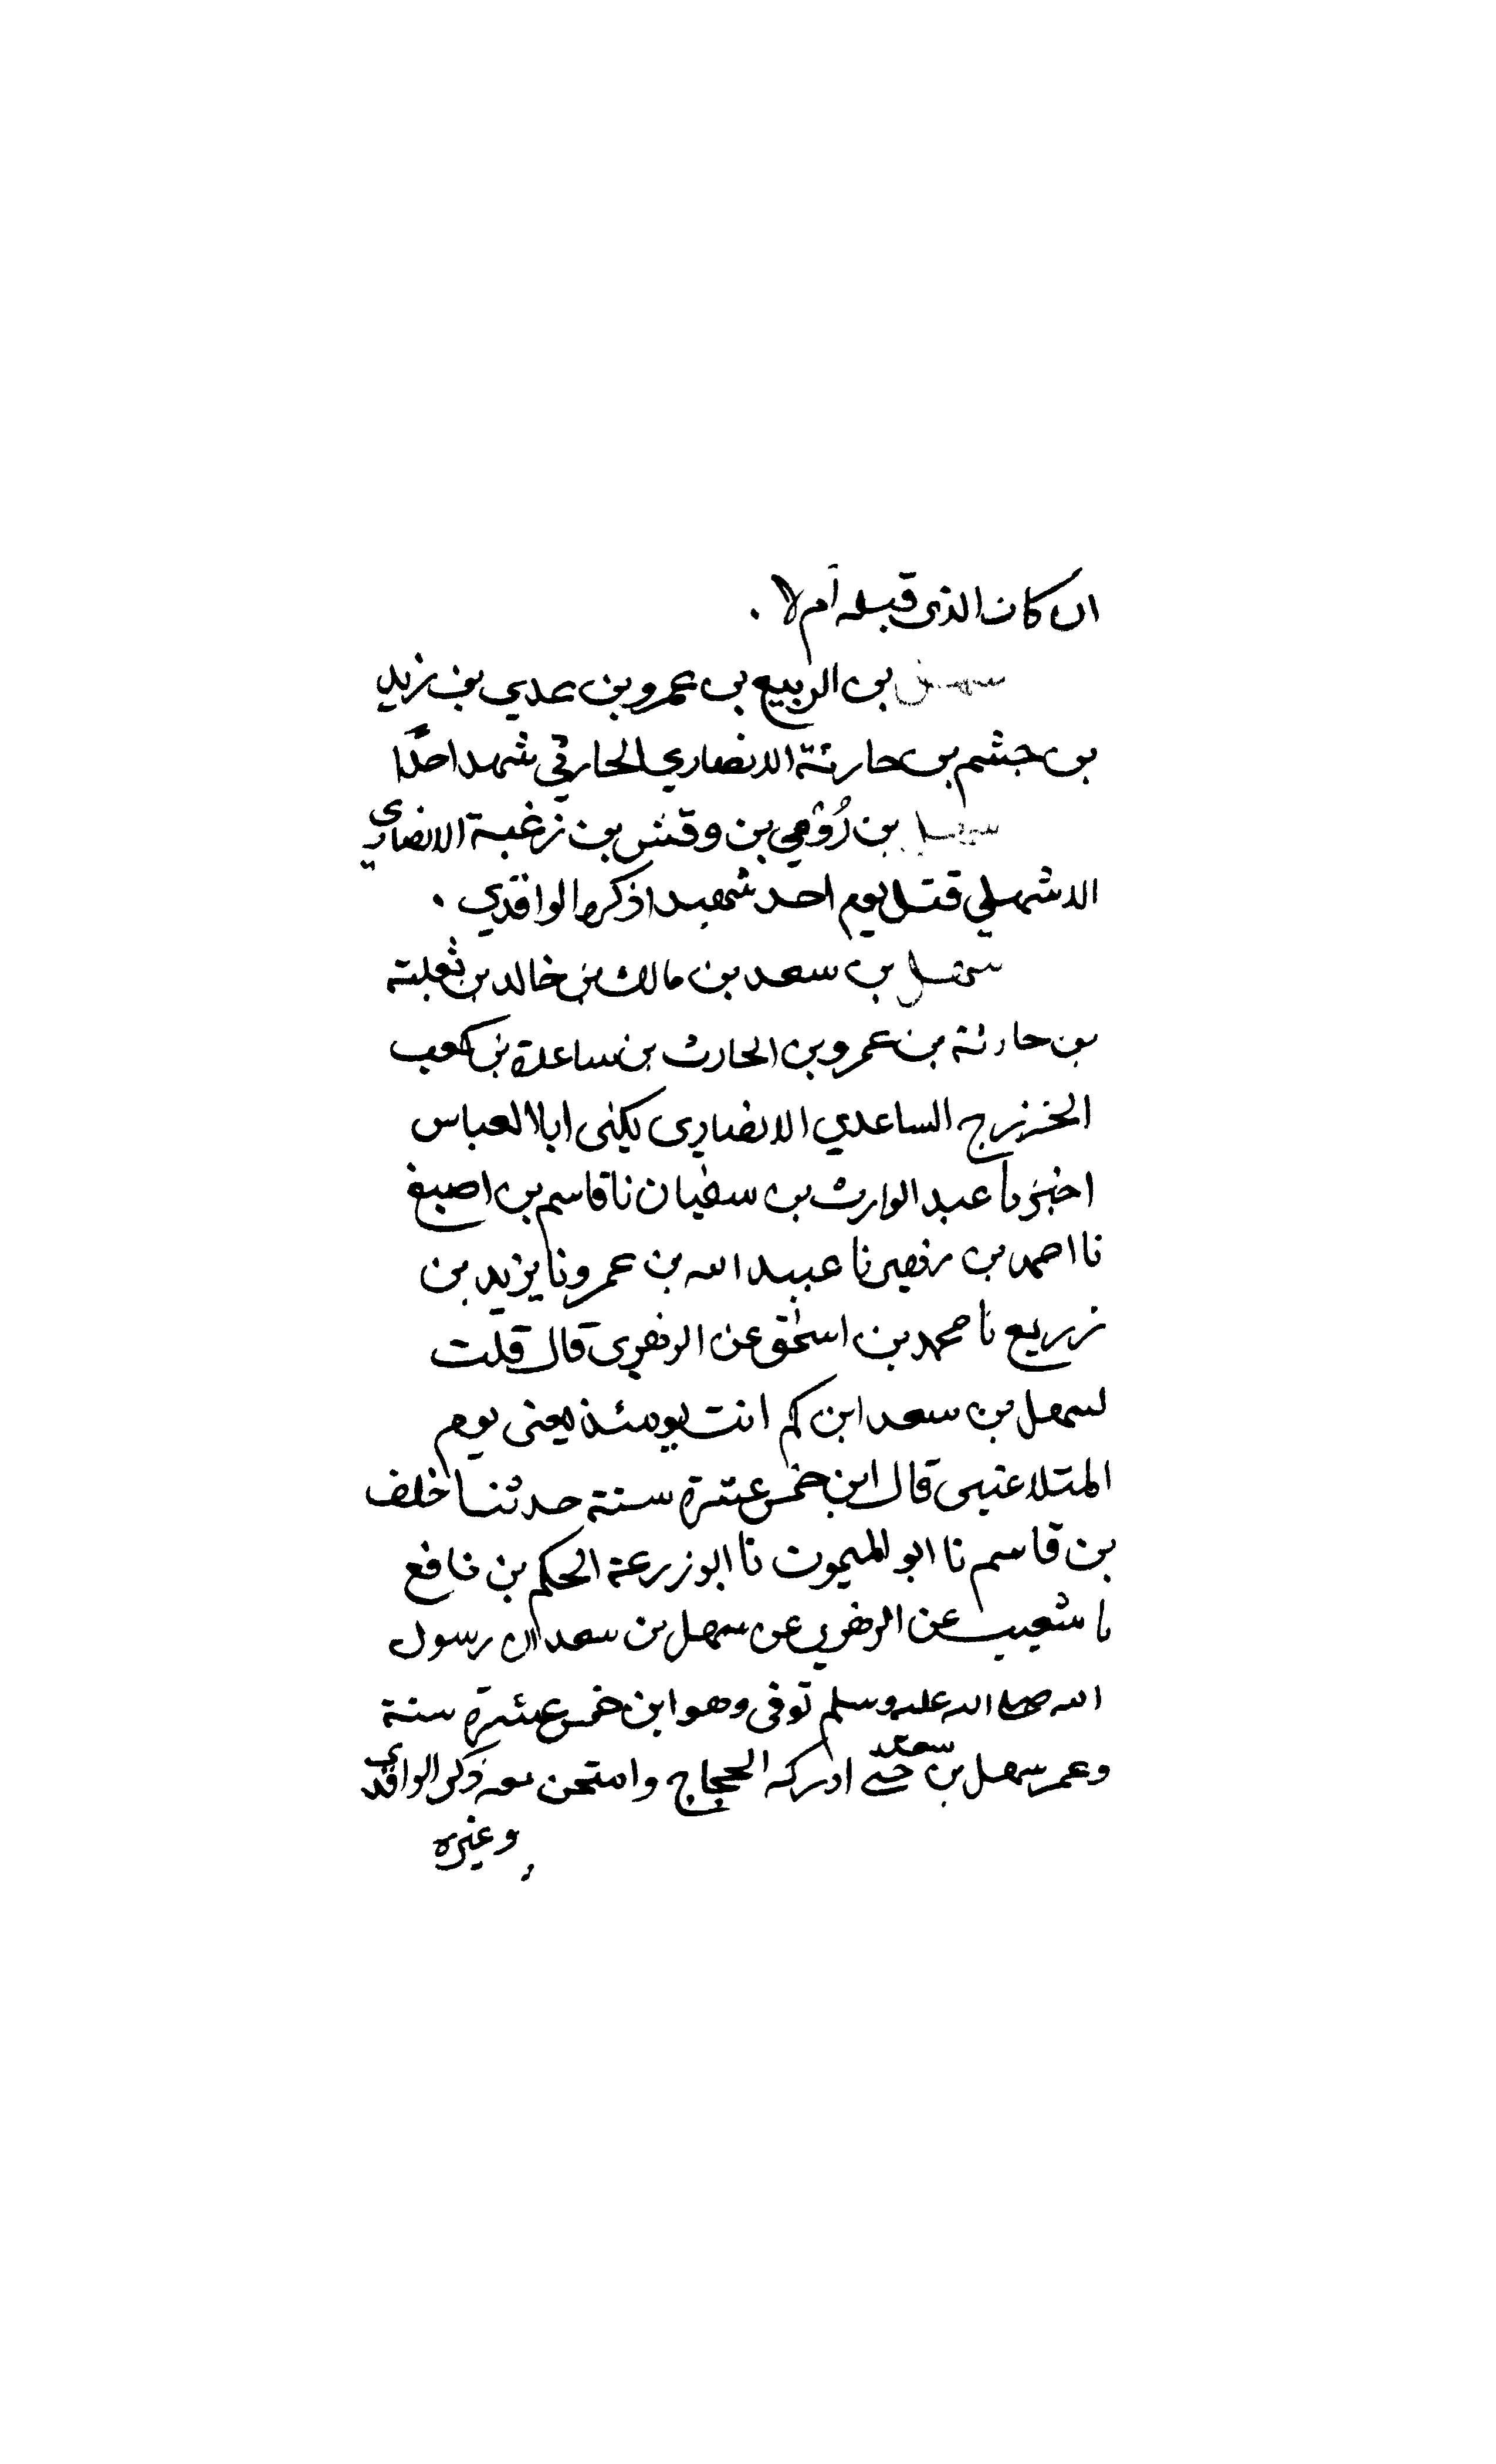 ان كان الذى قبله أم لا .
سهل بن الربيع بن عمرو بن عدي بن زيد
بن جشم بن حارثة الانصاري الحارثي شهد احدًا
سهل بن رُوْمي بن وقش بن زغبة الانصاري
الاشهلي قتل يوم احد شهيدا ذكره الواقدي .
سهل بن سعد بن مالك بن خالد بن ثعلبة
بن حارثة بن عمرو بن الحارث بن ساعدة بن كعب
الخزرج الساعدي الانصاري يكنى ابا العباس
اخبرنا عبد الوارث بن سفيان نا قاسم بن اصبغ
نا احمد بن زهير نا عبيد الله بن عمرو نا يزيد بن
زريع نا محمد بن اسحق عن الزهري قال قلت
لسهل بن سعد ابن كم انت يومئذ يعنى يوم
المتلاعنين قال ابن خمس عشرة سنة حدثنا خلف
بن قاسم نا ابو الميمون نا ابو زرعة الحكم بن نافع
نا شعيب عن الزهري عن سهل بن سعد ان رسول
الله صلى الله عليه وسلم توفى وهو ابن خمس عشرة سنة
وعمر سهل بن سعد حتى ادركه الحجاج وامتحن معه ذكر الواقدي
وغيره